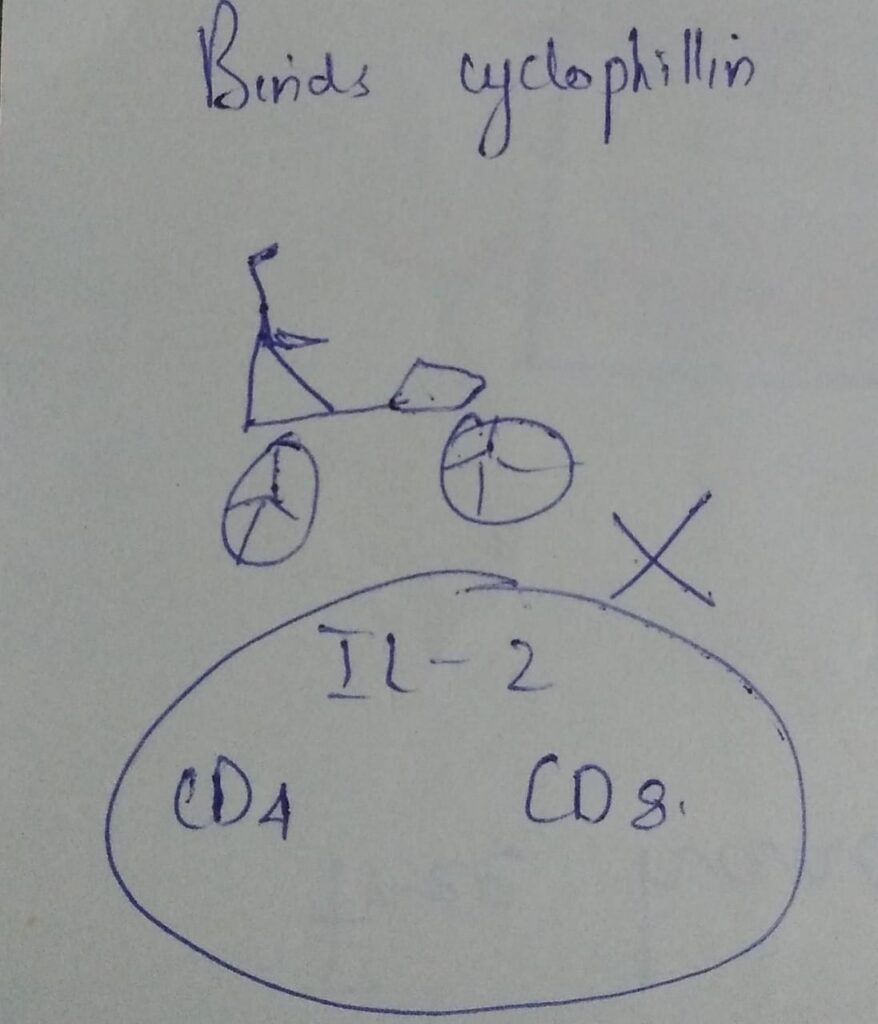 Binds cyclophillin
IL-2
CD4 CD8.